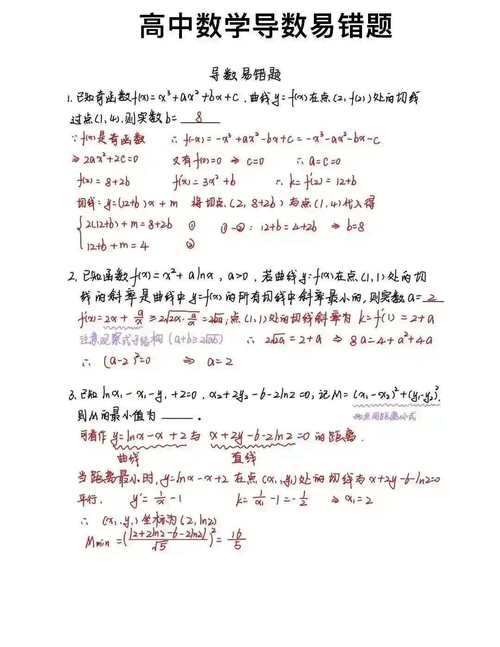 高中数学导数易错题
导数易错题
1. 已知奇函数f(x)=x³+ax²+bx+c,曲线y=f(x)在点(2,f(2))处的切线
过点(1,4),则实数b= 8
∵f(x)是奇函数 ∴f(-x)=-x³+ax²-bx+c=-x³-ax²-bx-c
⇒2ax²+2c=0 又有f(0)=0 ⇒ c=0 ∴a=c=0
f(2)=8+2b f'(x)=3x²+b ∴k=f'(2)=12+b
切线:y=(12+b)x+m 将切点(2,8+2b)与点(1,4)代入得
{2(12+b)+m=8+2b ① ①-②:12+b=4+2b ⇒ b=8
12+b+m=4 ②
2. 已知函数f(x)=x²+alnx,a>0,若曲线y=f(x)在点(1,1)处的切
线的斜率是曲线中y=f(x)的所有切线中斜率最小的,则实数a=2
f'(x)=2x+a/x≥2√(2x·a/x)=2√2a,点(1,1)处的切线斜率为k=f'(1)=2+a
注意观察式子结构(a+b≥2√ab) ∴2√2a=2+a ⇒ 8a=4+a²+4a
∴(a-2)²=0 ⇒ a=2
3. 已知lnx₁-x₁-y₁+2=0,x₂+2y₂-6-2ln2=0,记M=(x₁-x₂)²+(y₁-y₂)²,
则M的最小值为 ____ 。 两点间距离公式
可看作y=lnx-x+2与x+2y-6-2ln2=0的距离.
曲线 直线
当距离最小时,y=lnx-x+2在点(x₁,y₁)处的切线与x+2y-6-ln2=0
平行. y'=1/x-1 k=1/x₁-1=-1/2 ⇒x₁=2
∴(x₁,y₁)坐标为(2,ln2)
Mmin=(|2+2ln2-6-2ln2|/√5)²=16/5